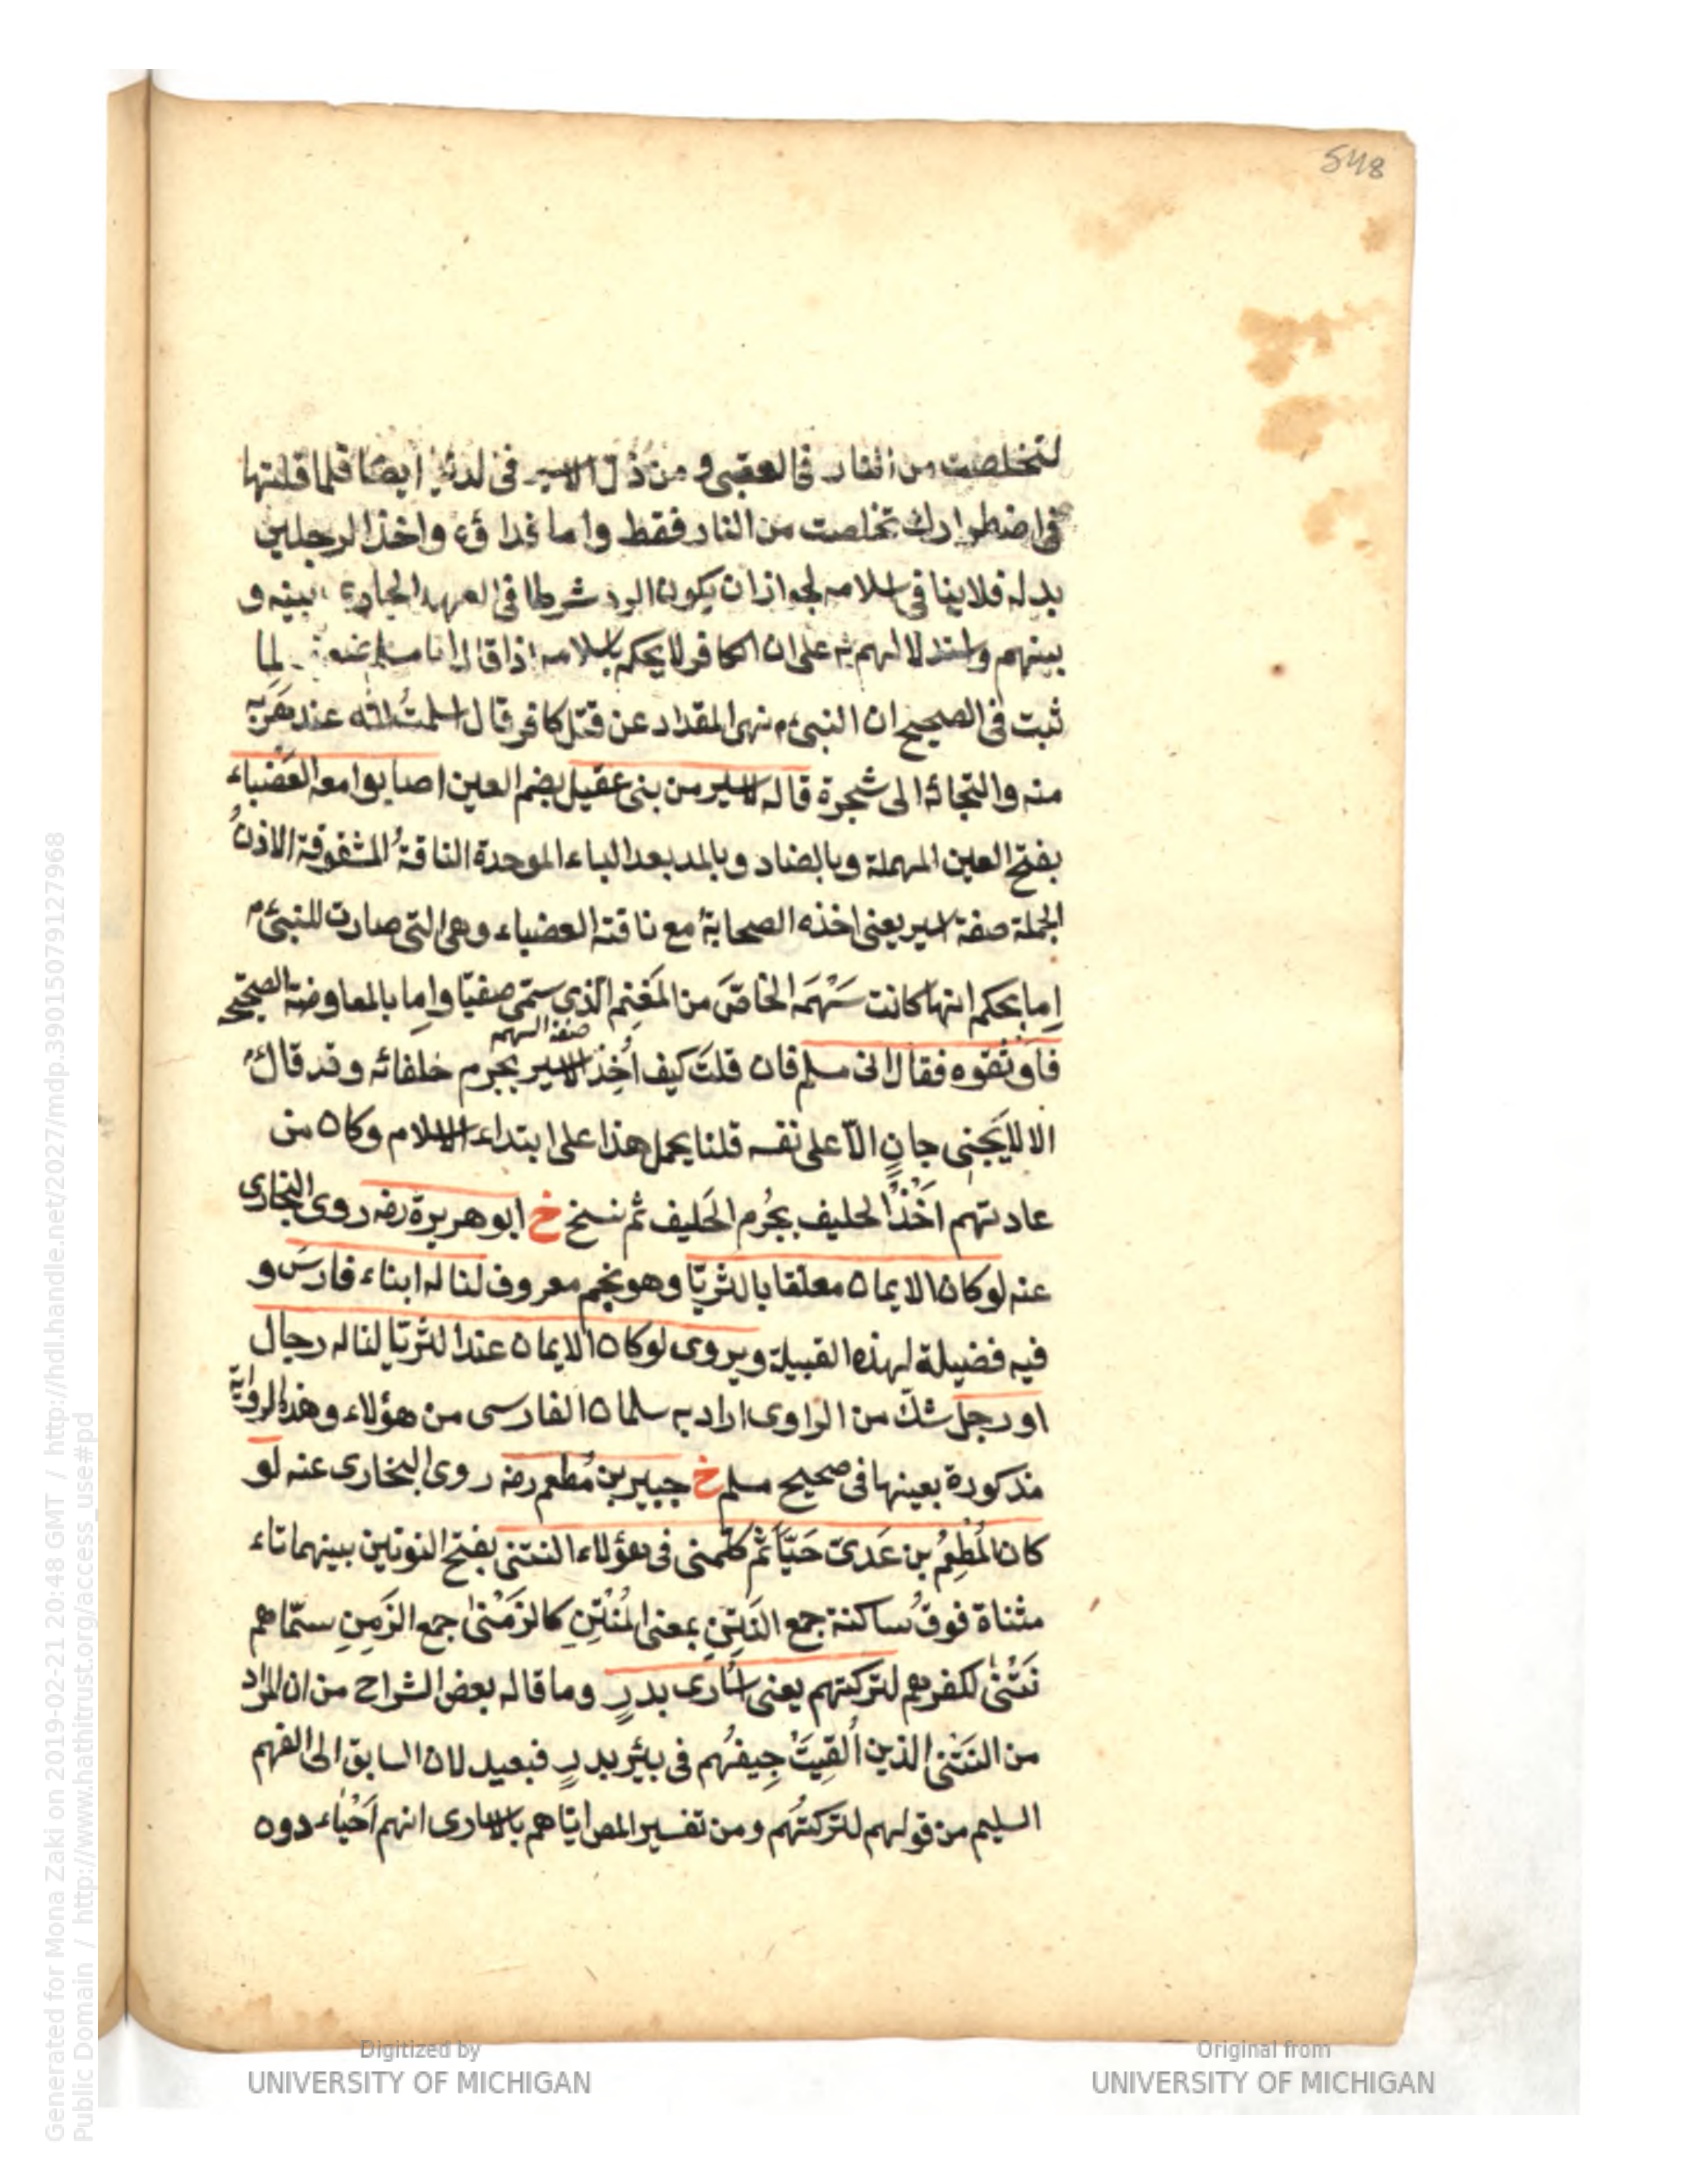 548
لتخلصت من النار في العقبى و من ذل الاسر في الدنيا ايضا فلما قلتها
في اضطرارك تخلصت من النار فقط واما فداؤه واخذ الرجلين
بدله فلا ينافي اسلامه لجواز ان يكون الرد شرطا في العهد الجاري بينه و
بينهم واستدلالهم به على ان الكافر لا يحكم باسلامه اذا قال انا مسلم لما
ثبت في الصحيح ان النبي م نهى المقداد عن قتل كافر قال اسلمت لله عند هربه
منه والتجائه الى شجرة قاله لاسير من بني عقيل بضم العين اصابوا معه العضباء
بفتح العين المهملة وبالضاد وبالمد بعد الباء الموحدة الناقة المشقوقة الاذن
الجملة صفة اسير يعني اخذه الصحابة مع ناقته العضباء وهي التي صارت للنبي م
اما بحكم انها كانت سَهْمَه الخاصَّ من المَغنم الذي سمّى صفيّا واما بالمعاوضة الصحيح
صفة السهم
فاوثقوه فقال اني مسلم فان قلتَ كيف اُخِذ الاسير بجرم حلفائه وقد قال م
الا لا يَجني جانٍ الّا على نفسه قلنا يحمل هذا على ابتداء الاسلام وكان من
عادتهم اَخْذُ الحليف بجُرم الحَليف ثم نسخ خ ابو هريرة رضه روى البخارى
عنه لو كان الايمان معلقا بالثريّا وهو نجم معروف لناله ابناء فارسَ و
فيه فضيلة لهذه القبيلة ويروى لو كان الايمان عند الثريّا لناله رجال
او رجل شك من الراوى اراد به سلمان الفارسى من هؤلاء وهذه الرواية
مذكورة بعينها فى صحيح مسلم خ جبير بن مُطعم رضه روى البخارى عنه لو
كان المُطعِمُ بن عَدىّ حَيّاً ثم كلّمنى فى هؤلاء النتنى بفتح النونين بينهما تاء
مثناة فوقُ ساكنة جمع النَتِنِ بمعنى المُنْتِنِ كالزَمْنى جمع الزَمِنِ سمّاهم
نَتْنى لكفرهم لتركتهم يعنى اسارى بدرٍ وما قاله بعض الشراح من ان المراد
من النَتْنى الذين اُلقِيَتْ جِيفُهُم فى بئر بدرٍ فبعيد لان السابق الى الفهم
السليم من قولهم لتركتُهم ومن تفسير المص اياهم بالاسارى انهم اَحْياء دون
Generated for Mona Zaki on 2019-02-21 20:48 GMT / http://hdl.handle.net/2027/mdp.39015079127968
Public Domain / http://www.hathitrust.org/access_use#pd
Digitized by
UNIVERSITY OF MICHIGAN
Original from
UNIVERSITY OF MICHIGAN